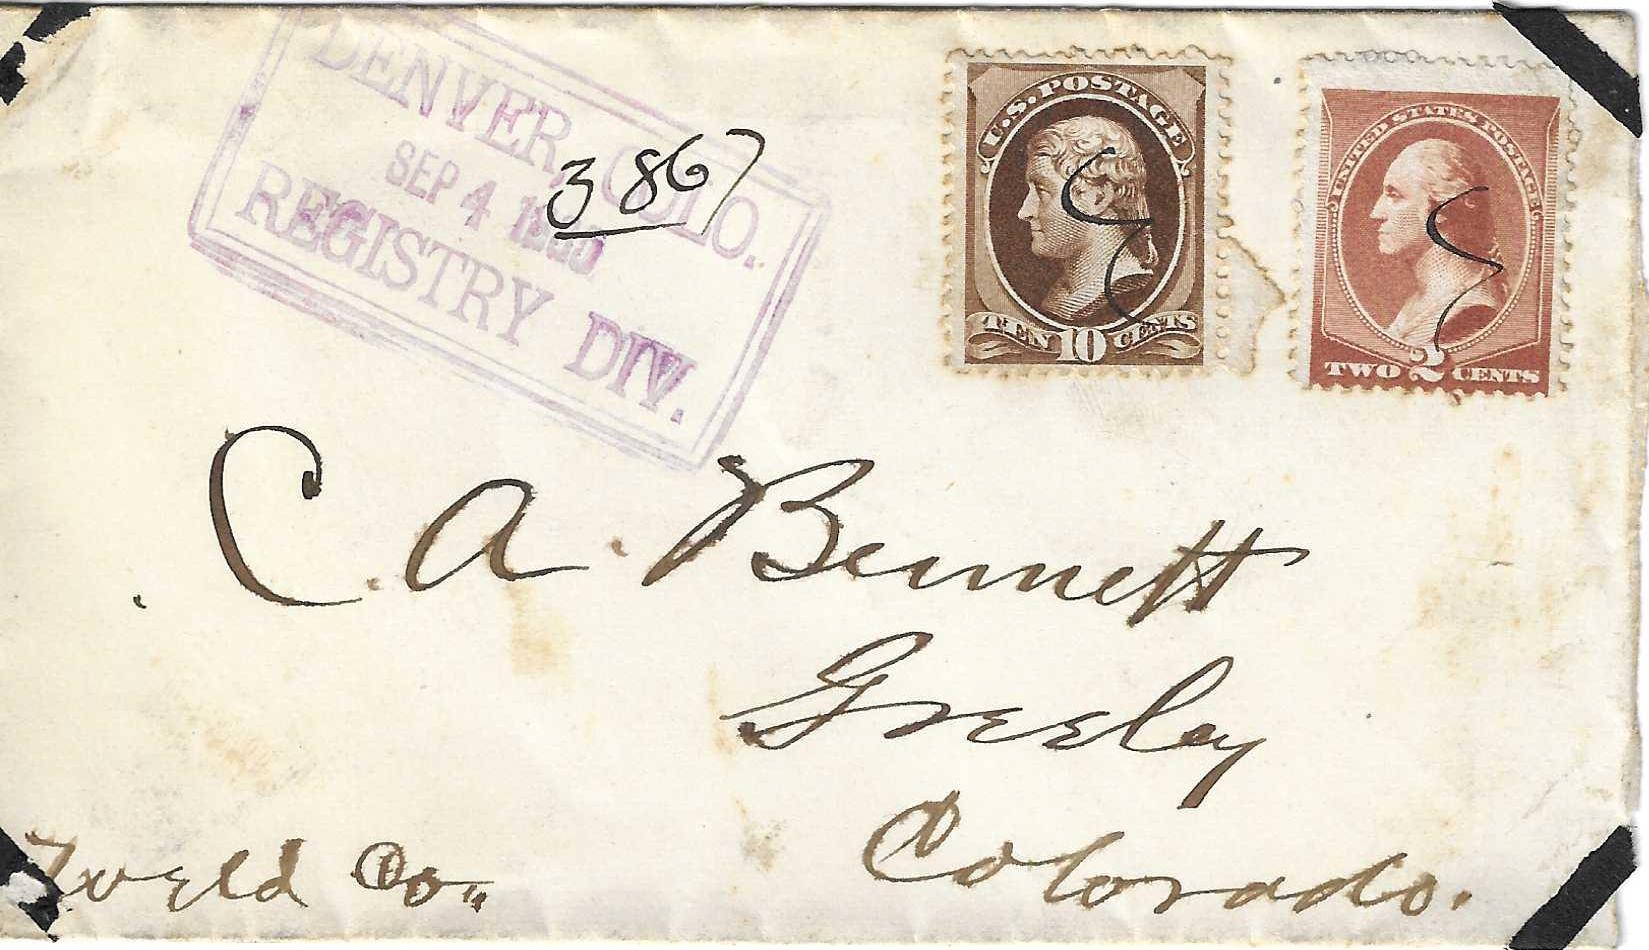 DENVER, COLO.
SEP 4
REGISTRY DIV.
3867
U.S. POSTAGE
TEN 10 CENTS
UNITED STATES POSTAGE
TWO 2 CENTS
C. A. Bennett
Greeley
Colorado.
Weld Co.,